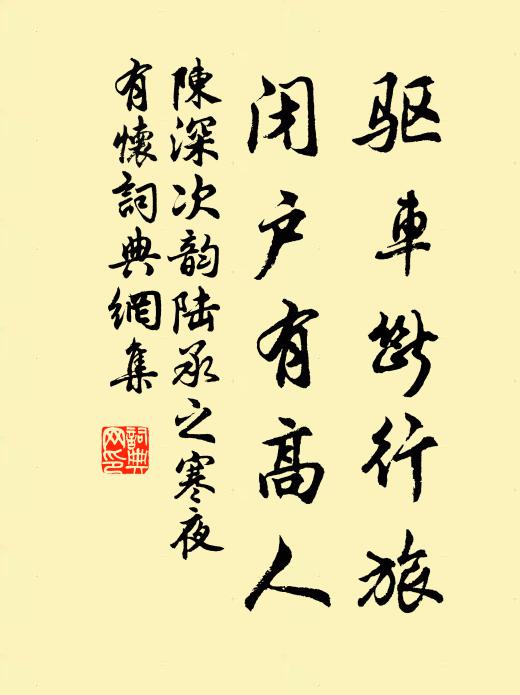 驱車断行旅
闭户有高人
陳深次韵陆承之寒夜
有懷詞典網集
詞典
网印